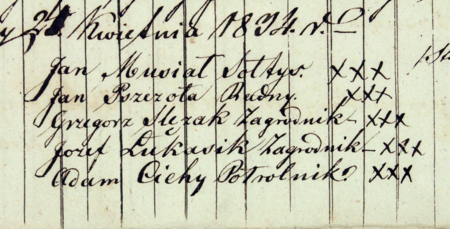 y 24. Kwietnia 1834. r.
Jan Musiał Sołtys. XXX
Jan Pszczoła Radny. XXX
Grzegorz Ślęzak Zagrodnik – XXX
Jozef Łukasik Zagrodnik – XXX
Adam Cichy Potrolnik. XXX